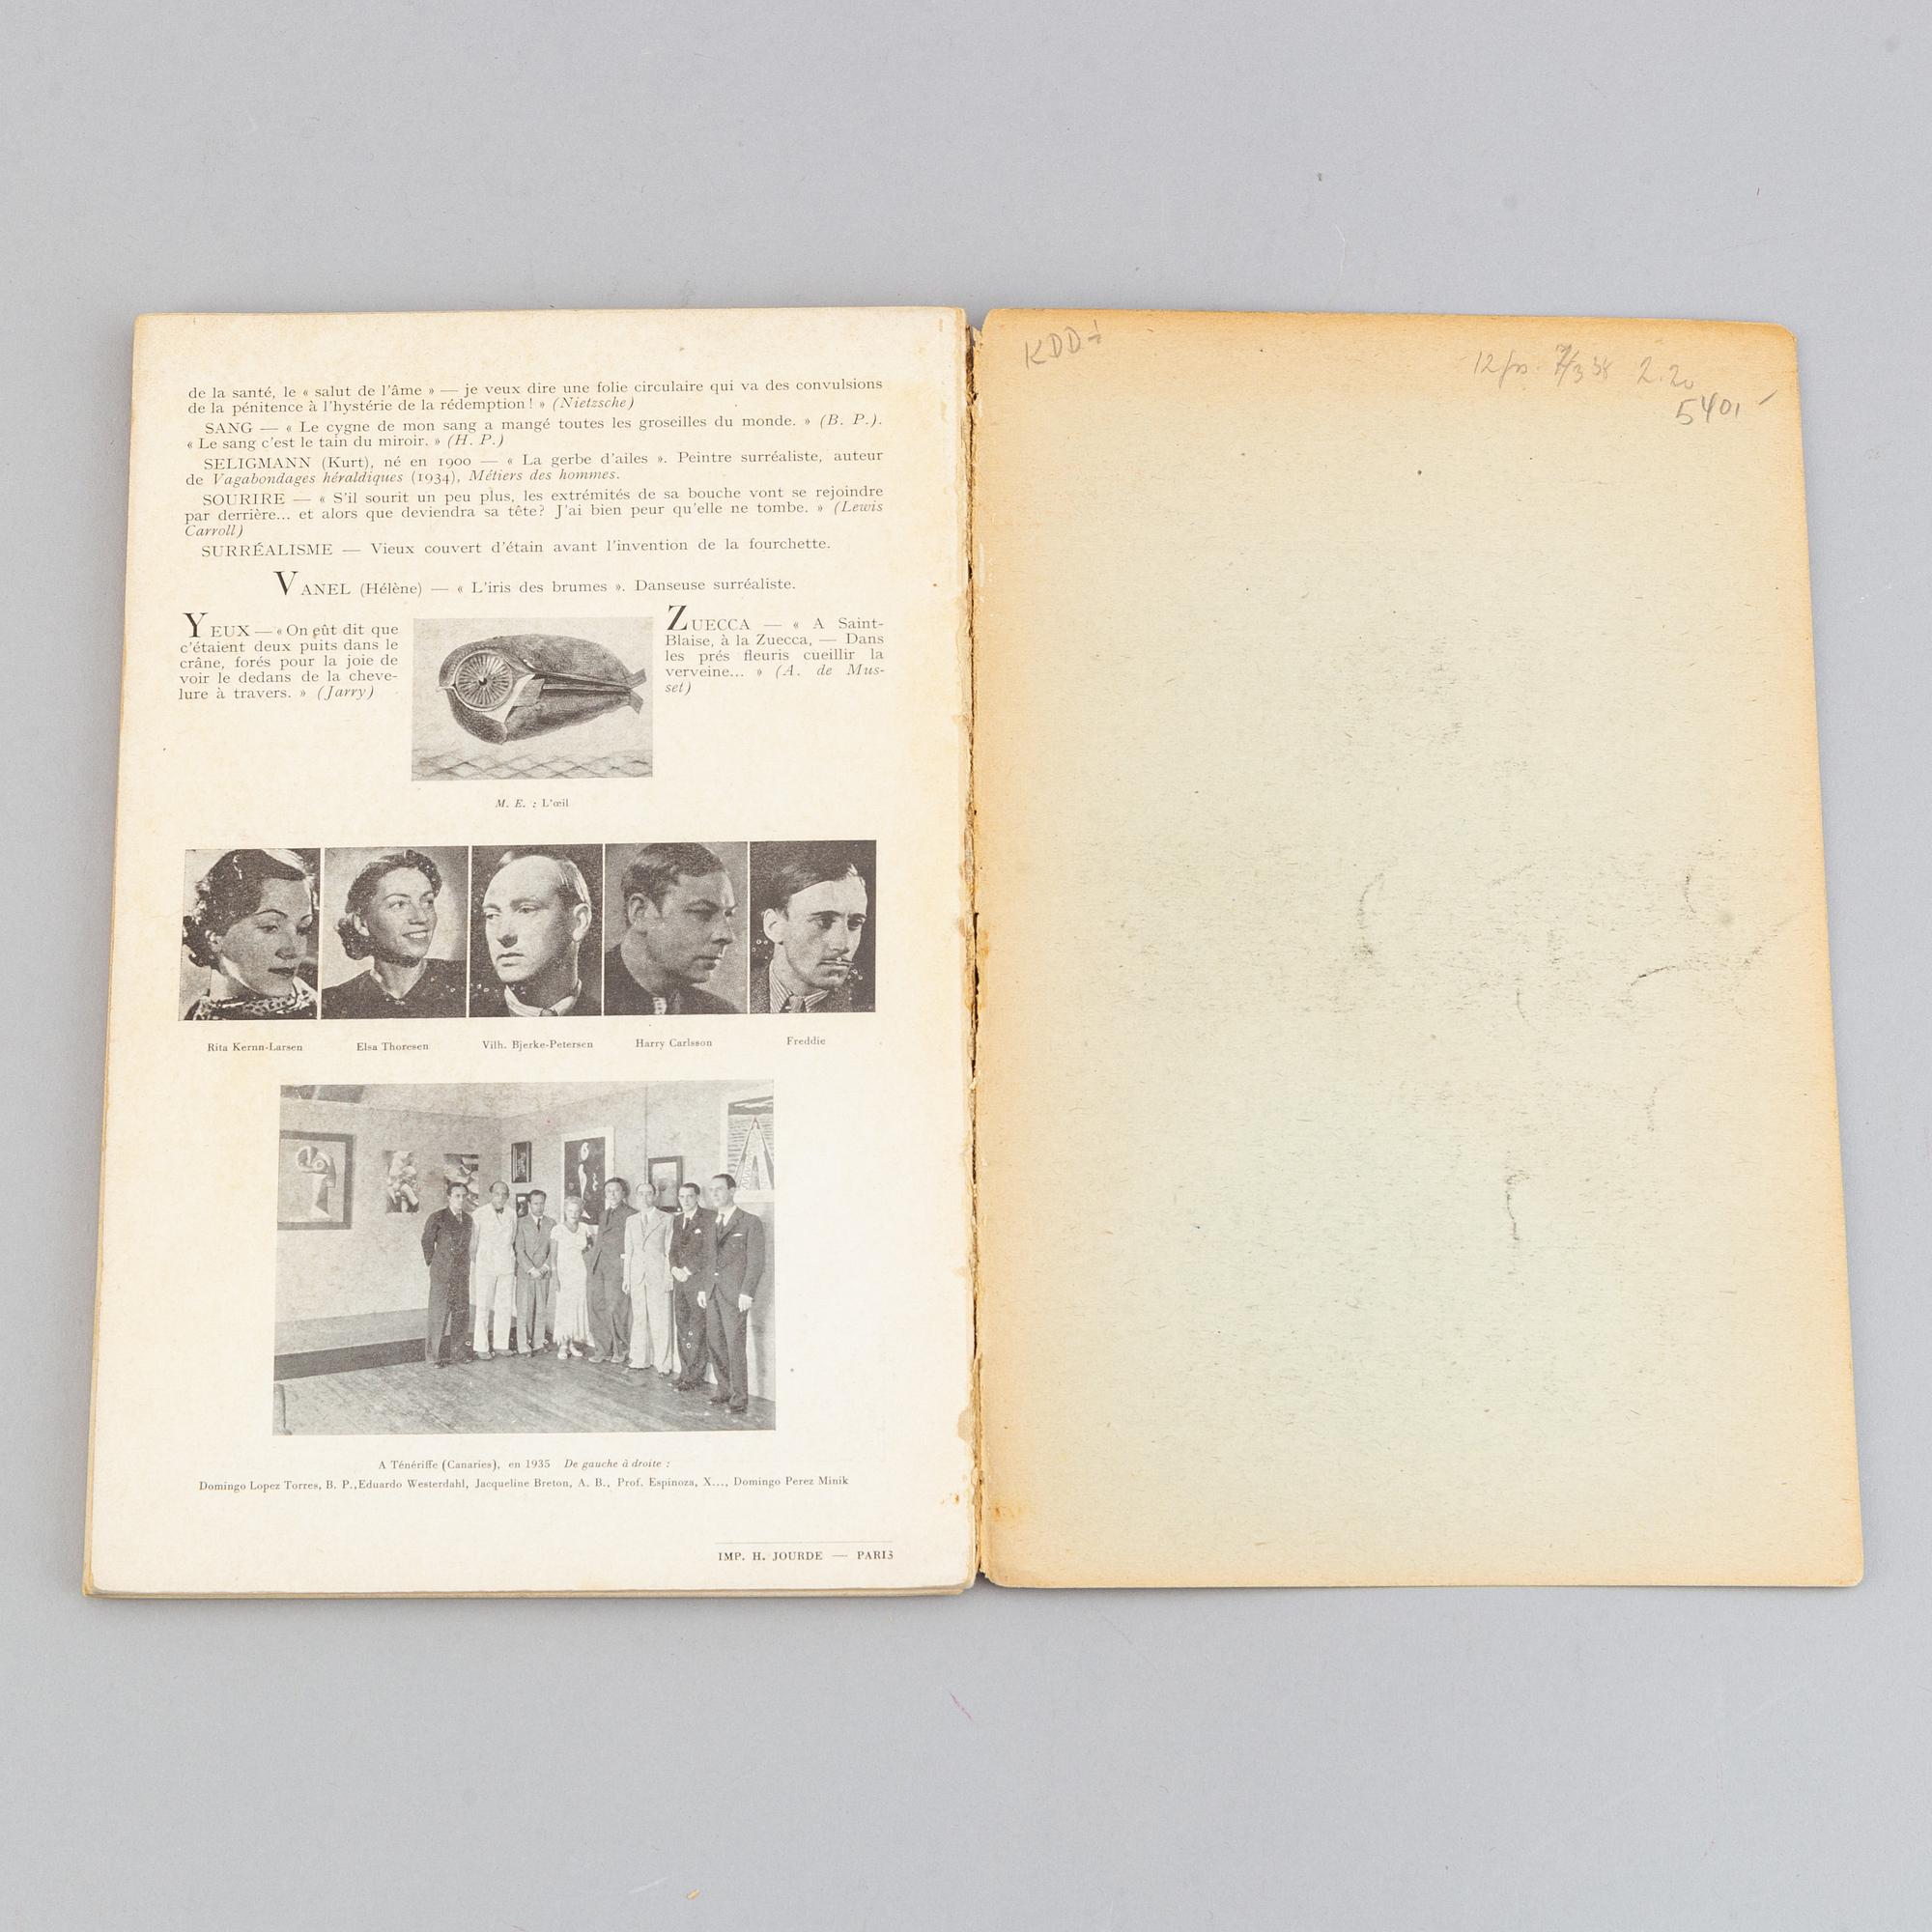 de la santé, le « salut de l'âme » — je veux dire une folie circulaire qui va des convulsions
de la pénitence à l'hystérie de la rédemption ! » (Nietzsche)
SANG — « Le cygne de mon sang a mangé toutes les groseilles du monde. » (B. P.).
« Le sang c'est le tain du miroir. » (H. P.)
SELIGMANN (Kurt), né en 1900 — « La gerbe d'ailes ». Peintre surréaliste, auteur
de Vagabondages héraldiques (1934), Métiers des hommes.
SOURIRE — « S'il sourit un peu plus, les extrémités de sa bouche vont se rejoindre
par derrière... et alors que deviendra sa tête? J'ai bien peur qu'elle ne tombe. » (Lewis
Carroll)
SURRÉALISME — Vieux couvert d'étain avant l'invention de la fourchette.
VANEL (Hélène) — « L'iris des brumes ». Danseuse surréaliste.
YEUX — « On eût dit que
c'étaient deux puits dans le
crâne, forés pour la joie de
voir le dedans de la cheve-
lure à travers. » (Jarry)
ZUECCA — « A Saint-
Blaise, à la Zuecca, — Dans
les prés fleuris cueillir la
verveine... » (A. de Mus-
set)
M. E. : L'œil
Rita Kernn-Larsen
Elsa Thoresen
Vilh. Bjerke-Petersen
Harry Carlsson
Freddie
A Ténériffe (Canaries), en 1935 De gauche à droite :
Domingo Lopez Torres, B. P., Eduardo Westerdahl, Jacqueline Breton, A. B., Prof. Espinoza, X..., Domingo Perez Minik
IMP. H. JOURDE — PARIS
KDD
12 2.20